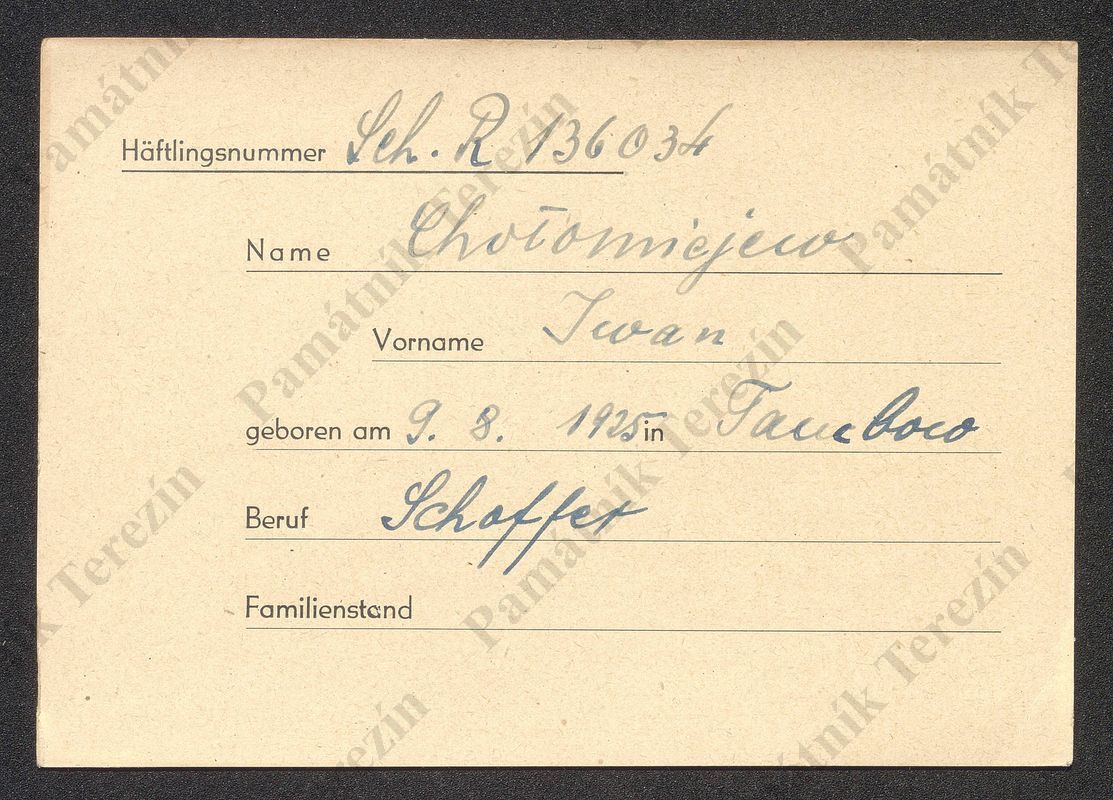 Häftlingsnummer Sch. R 136034
Name Chołomiejew
Vorname Iwan
geboren am 9. 8. 1925 in Tambow
Beruf Schoffer
Familienstand
Památník Terezín
Památník Terezín
Památník Terezín
Památník Terezín
Památník Terezín